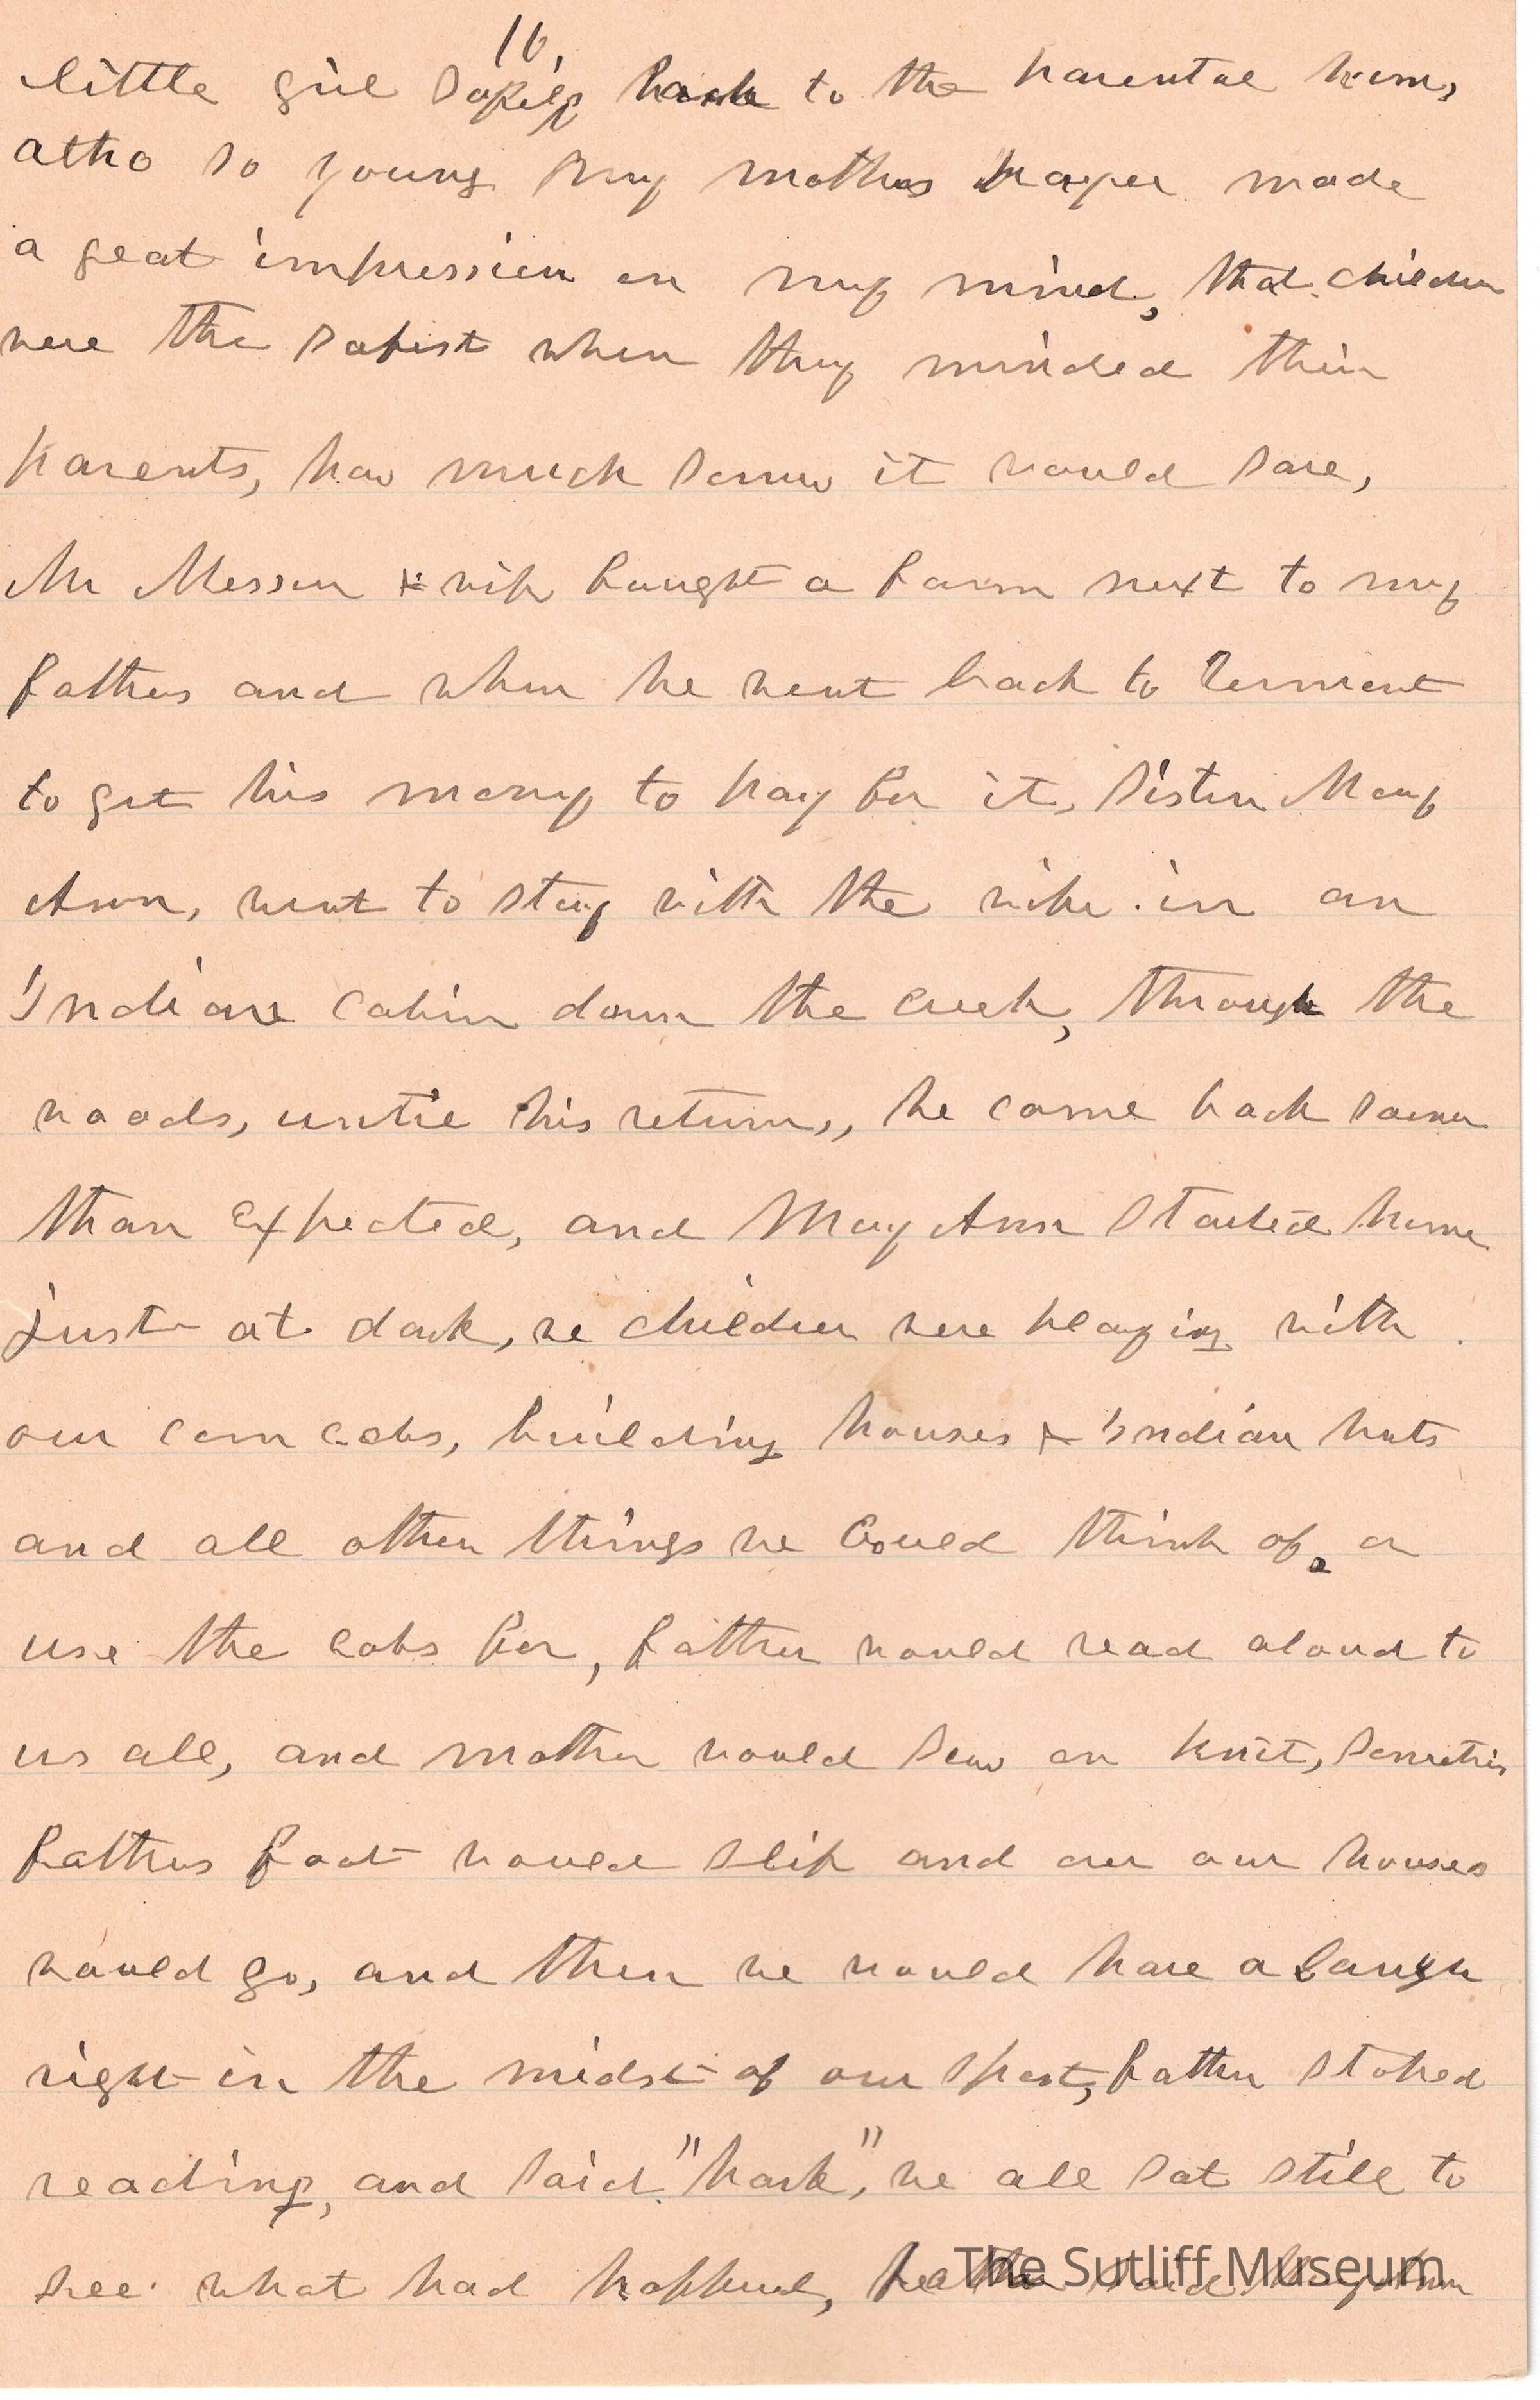 16,
little girl safely back to the parental home,
altho so young my mothers prayer made
a great impression on my mind, that children
were the safist when they minded their
parents, how much sorrow it would save,
Mr Messer & wife bought a farm next to my
fathers and when he went back to Vermont
to get his money to pay for it, Sister Mary
Ann, went to stay with the wife in an
Indian cabin down the creek, through the
woods, until his return,, he came back sooner
than expected, and Mary Ann started home
just at dark, we children were playing with
our corn cobs, building houses & Indian huts
and all other things we could think of, or
use the cobs for, father would read aloud to
us all, and mother would sew or knit,
fathers foot would slip and over our houses
would go, and then we would have a laugh
right in the midst of our sport, father stoped
reading, and said "hark", we all sat still to
see what had happened, father said Mary Ann
The Sutliff Museum